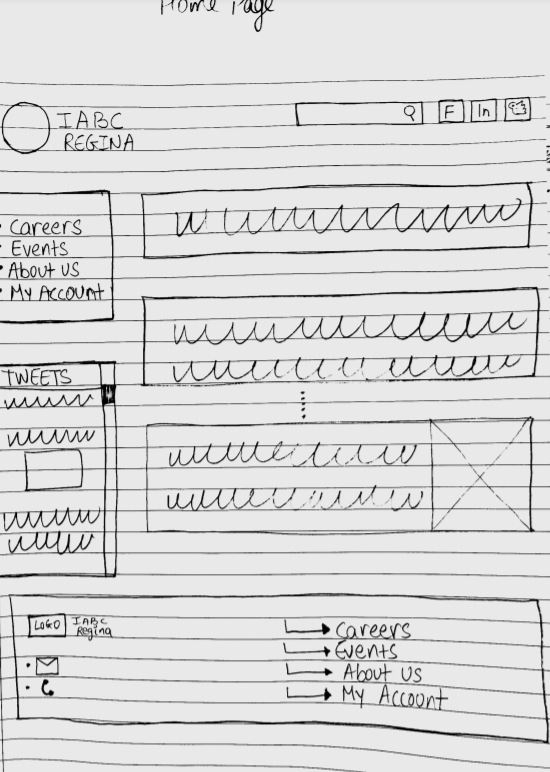 Home Page
IABC
REGINA
F In
• Careers
• Events
• About us
• My Account
TWEETS
LOGO IABC
Regina
Careers
Events
About Us
My Account